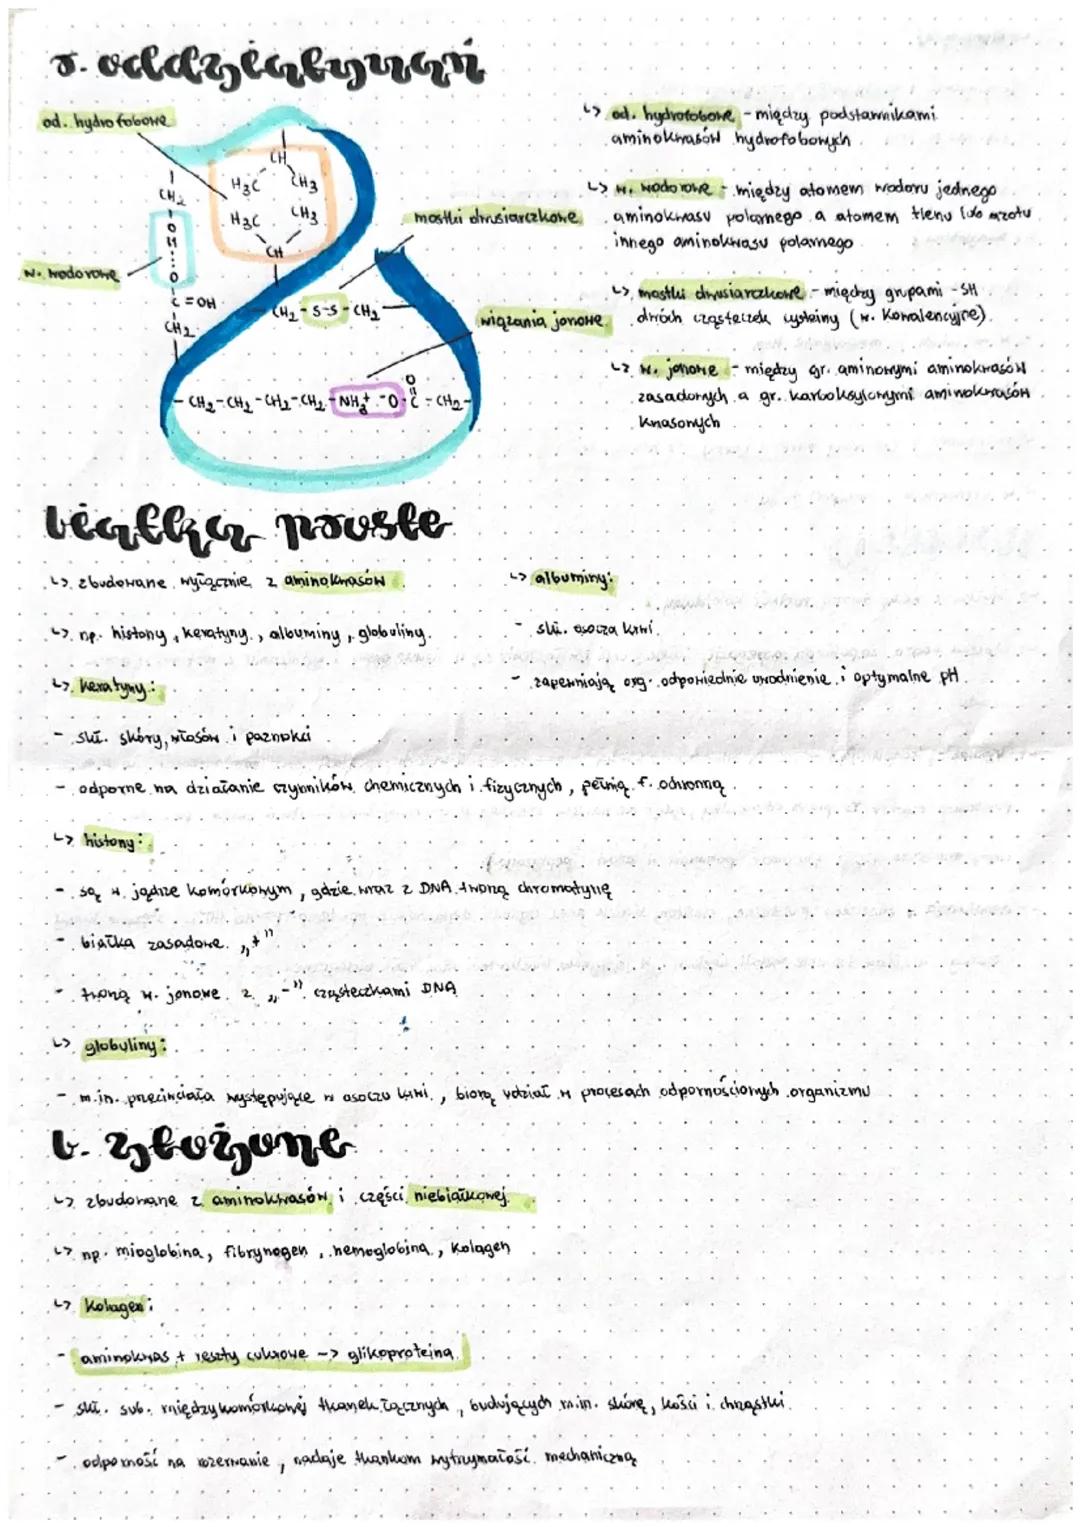 r. oddziaływań
od. hydrofobowe
CH
H3C CH3
H3C CH3
CH
CH2
O
H
O
C=OH
CH2
w. wodorowe
mostki dwusiarczkowe
CH2-S-S-CH2
wiązania jonowe
-CH2-CH2-CH2-CH2-NH3+ -O-C-CH2-
O
↳ od. hydrofobowe - między podstawnikami
aminokwasów hydrofobowych
↳ w. wodorowe - między atomem wodoru jednego
aminokwasu polarnego a atomem tlenu lub azotu
innego aminokwasu polarnego
↳ mostki dwusiarczkowe - między grupami -SH
dwóch cząsteczek cysteiny (w. kowalencyjne)
↳ w. jonowe - między gr. aminowymi aminokwasów
zasadowych a gr. karboksylowymi aminokwasów
kwasowych
białka proste
↳ zbudowane wyłącznie z aminokwasów
↳ np. histony, keratyny, albuminy, globuliny
↳ keratyny:
- skł. skóry, włosów i paznokci
- odporne na działanie czynników chemicznych i fizycznych, pełnią f. ochronną
↳ albuminy:
- skł. osocza krwi
- zapewniają org. odpowiednie uwodnienie i optymalne pH
↳ histony:
- są w jądrze komórkowym, gdzie wraz z DNA tworzą chromatynę
- białka zasadowe „+”
- tworzą w. jonowe z „-” cząsteczkami DNA
↳ globuliny:
- m.in. przeciwciała występujące w osoczu krwi, biorą udział w procesach odpornościowych organizmu
b. złożone
↳ zbudowane z aminokwasów i części niebiałkowej
↳ np. mioglobina, fibrynogen, hemoglobina, kolagen
↳ kolagen:
- aminokwas + reszty cukrowe -> glikoproteina
- skł. sub. międzykomórkowej tkanek łącznych, budujących m.in. skórę, kości i chrząstki
- odporność na rozerwanie, nadaje tkankom wytrzymałość mechaniczną